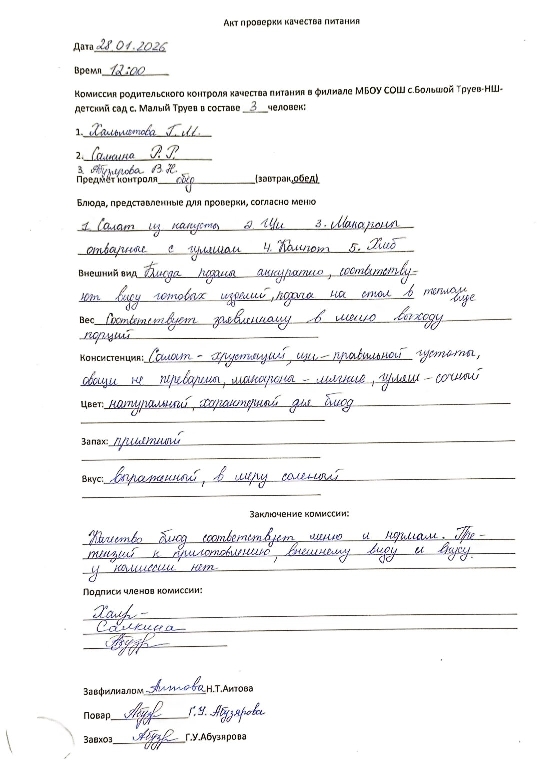 Акт проверки качества питания
Дата 28.01.2026
Время 12:00
Комиссия родительского контроля качества питания в филиале МБОУ СОШ с.Большой Труев-НШ-
детский сад с. Малый Труев в составе 3 человек:
1. Халиметова Г.М.
2. Салкина Р.Р.
3. Абузярова В.Н.
Предмет контроля обед (завтрак,обед)
Блюда, представленные для проверки, согласно меню
1. Салат из капусты 2. Щи 3. Макароны
отварные с гуляшом 4. Компот 5. Хлеб
Внешний вид Блюда поданы аккуратно, соответству-
ют виду готовых изделий, подача на стол в теплом
виде
Вес Соответствует заявленному в меню выходу
порций
Консистенция: Салат - хрустящий, щи - правильной густоты,
овощи не переварены, макароны - мягкие, гуляш - сочный
Цвет: натуральный, характерный для блюд
Запах: приятный
Вкус: выраженный, в меру соленый
Заключение комиссии:
Качество блюд соответствует меню и нормам. Пре-
тензий к приготовлению, внешнему виду и вкусу
у комиссии нет.
Подписи членов комиссии:
Салкина
Абузр
Завфилиалом Аитова Н.Т.Аитова
Повар Абузр Г.У. Абузярова
Завхоз Абузр Г.У.Абузярова